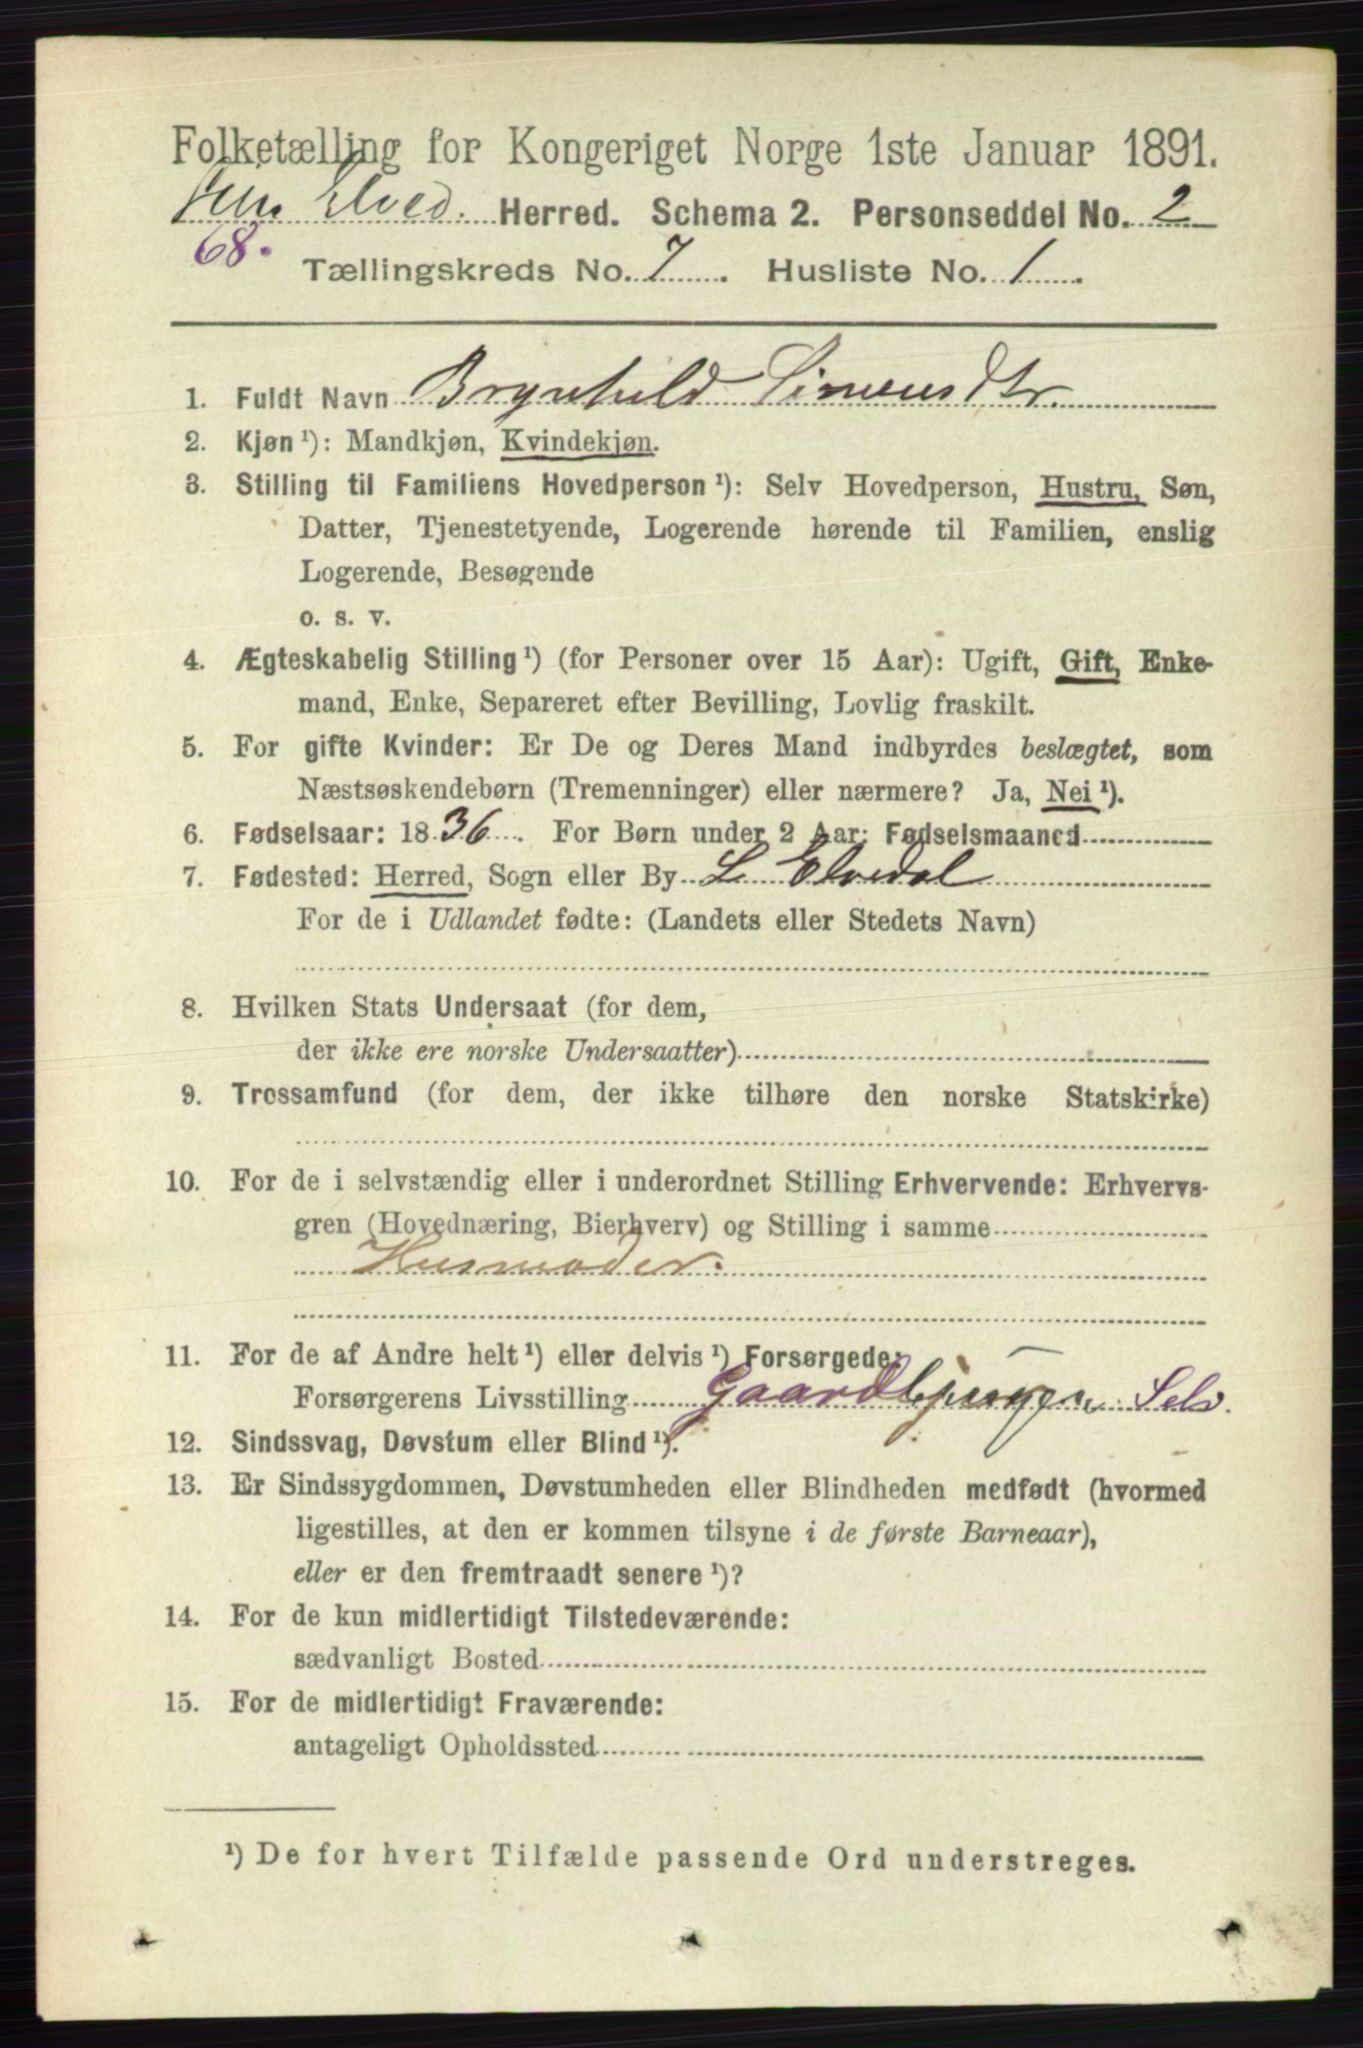 Folketælling for Kongeriget Norge 1ste Januar 1891.
Elved. Herred. Schema 2. Personseddel No. 2
68. Tællingskreds No. 7. Husliste No. 1.
1. Fuldt Navn Brynhild Simensdtr.
2. Kjøn ¹): Mandkjøn, Kvindekjøn.
3. Stilling til Familiens Hovedperson ¹): Selv Hovedperson, Hustru, Søn,
Datter, Tjenestetyende, Logerende hørende til Familien, enslig
Logerende, Besøgende
o. s. v.
4. Ægteskabelig Stilling ¹) (for Personer over 15 Aar): Ugift, Gift, Enke-
mand, Enke, Separeret efter Bevilling, Lovlig fraskilt.
5. For gifte Kvinder: Er De og Deres Mand indbyrdes beslægtet, som
Næstsøskendebørn (Tremenninger) eller nærmere? Ja, Nei ¹).
6. Fødselsaar: 1836. For Børn under 2 Aar: Fødselsmaaned
7. Fødested: Herred, Sogn eller By L Elvedal
For de i Udlandet fødte: (Landets eller Stedets Navn)
8. Hvilken Stats Undersaat (for dem,
der ikke ere norske Undersaatter)
9. Trossamfund (for dem, der ikke tilhøre den norske Statskirke)
10. For de i selvstændig eller i underordnet Stilling Erhvervende: Erhvervs-
gren (Hovednæring, Bierhverv) og Stilling i samme
Husmoder.
11. For de af Andre helt ¹) eller delvis ¹) Forsørgede:
Forsørgerens Livsstilling Gaardbruger Selv.
12. Sindssvag, Døvstum eller Blind ¹).
13. Er Sindssygdommen, Døvstumheden eller Blindheden medfødt (hvormed
ligestilles, at den er kommen tilsyne i de første Barneaar),
eller er den fremtraadt senere ¹)?
14. For de kun midlertidigt Tilstedeværende:
sædvanligt Bosted
15. For de midlertidigt Fraværende:
antageligt Opholdssted
¹) De for hvert Tilfælde passende Ord understreges.